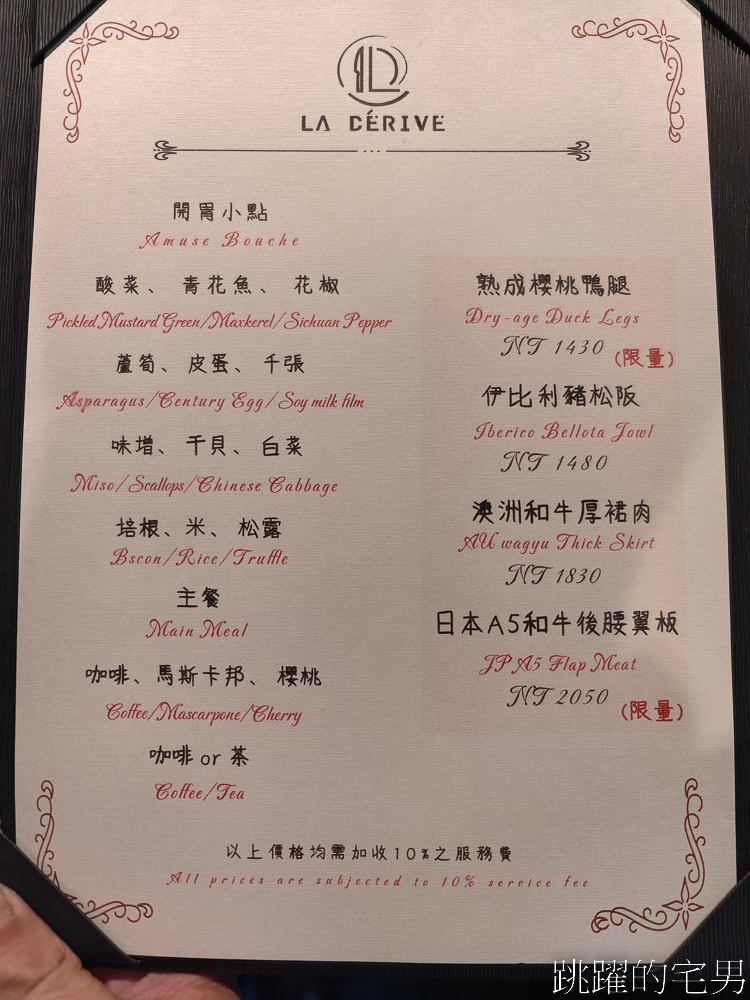 LA DÉRIVE
開胃小點
Amuse Bouche
酸菜、青花魚、花椒
Pickled Mustard Green/Maxkerel/Sichuan Pepper
蘆筍、皮蛋、千張
Asparagus/Century Egg/Soy milk film
味增、干貝、白菜
Miso/Scallops/Chinese Cabbage
培根、米、松露
Bscon/Rice/Truffle
主餐
Main Meal
咖啡、馬斯卡邦、櫻桃
Coffee/Mascarpone/Cherry
咖啡 or 茶
Coffee/Tea
熟成櫻桃鴨腿
Dry-age Duck Legs
NT 1430 (限量)
伊比利豬松阪
Iberico Bellota Jowl
NT 1480
澳洲和牛厚裙肉
AU wagyu Thick Skirt
NT 1830
日本A5和牛後腰翼板
JP A5 Flap Meat
NT 2050 (限量)
以上價格均需加收10%之服務費
All prices are subjected to 10% service fee
跳躍的宅男